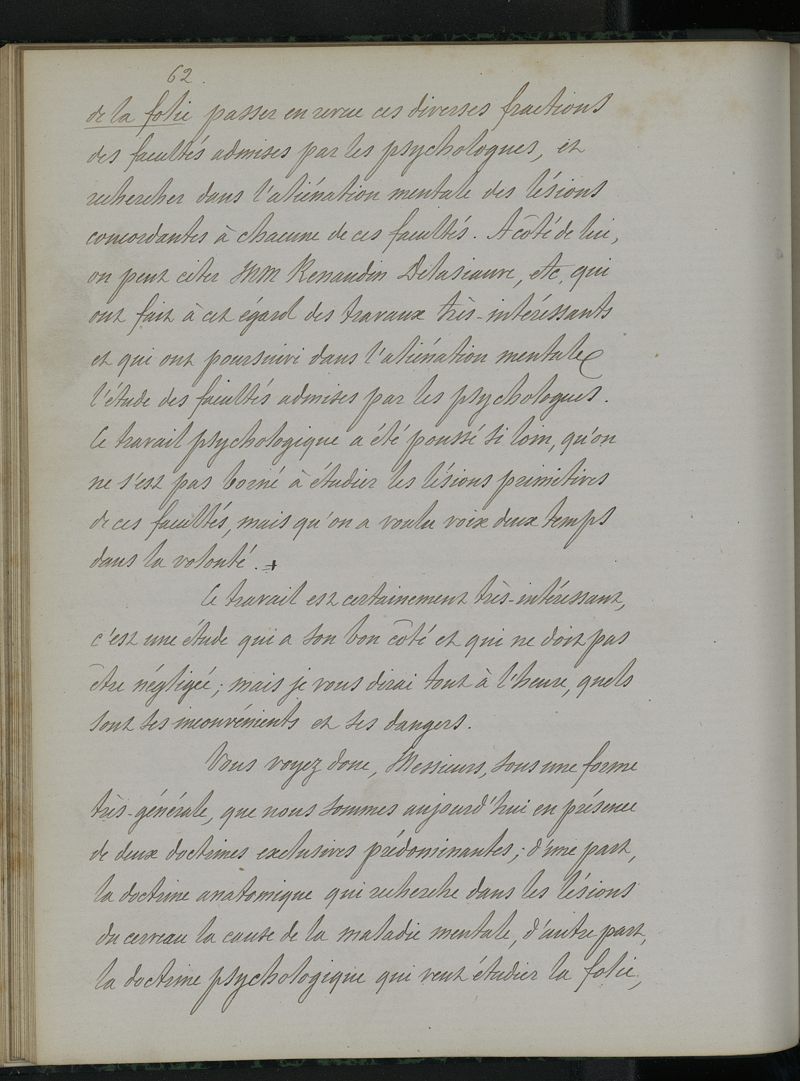 62.
de la folie passer en revue ces diverses fractions
des facultés admises par les psychologues, et
rechercher dans l'aliénation mentale des lésions
concordantes à chacune de ces facultés. A côté de lui,
on peut citer MM Renaudin Delasiauve, etc, qui
ont fait à cet égard des travaux très-intéressants
et qui ont poursuivi dans l'aliénation mentale
l'étude des facultés admises par les psychologues.
Ce travail psychologique a été poussé si loin, qu'on
ne s'est pas borné à étudier les lésions primitives
de ces facultés, mais qu'on a voulu voir deux temps
dans la volonté.
Ce travail est certainement très-intéressant,
c'est une étude qui a son bon côté et qui ne doit pas
être négligée; mais je vous dirai tout à l'heure, quels
sont ses inconvénients et ses dangers.
Vous voyez donc, Messieurs, sous une forme
très-générale, que nous sommes aujourd'hui en présence
de deux doctrines exclusives prédominantes; d'une part,
la doctrine anatomique qui recherche dans les lésions
du cerveau la cause de la maladie mentale, d'autre part,
la doctrine psychologique qui veut étudier la folie,